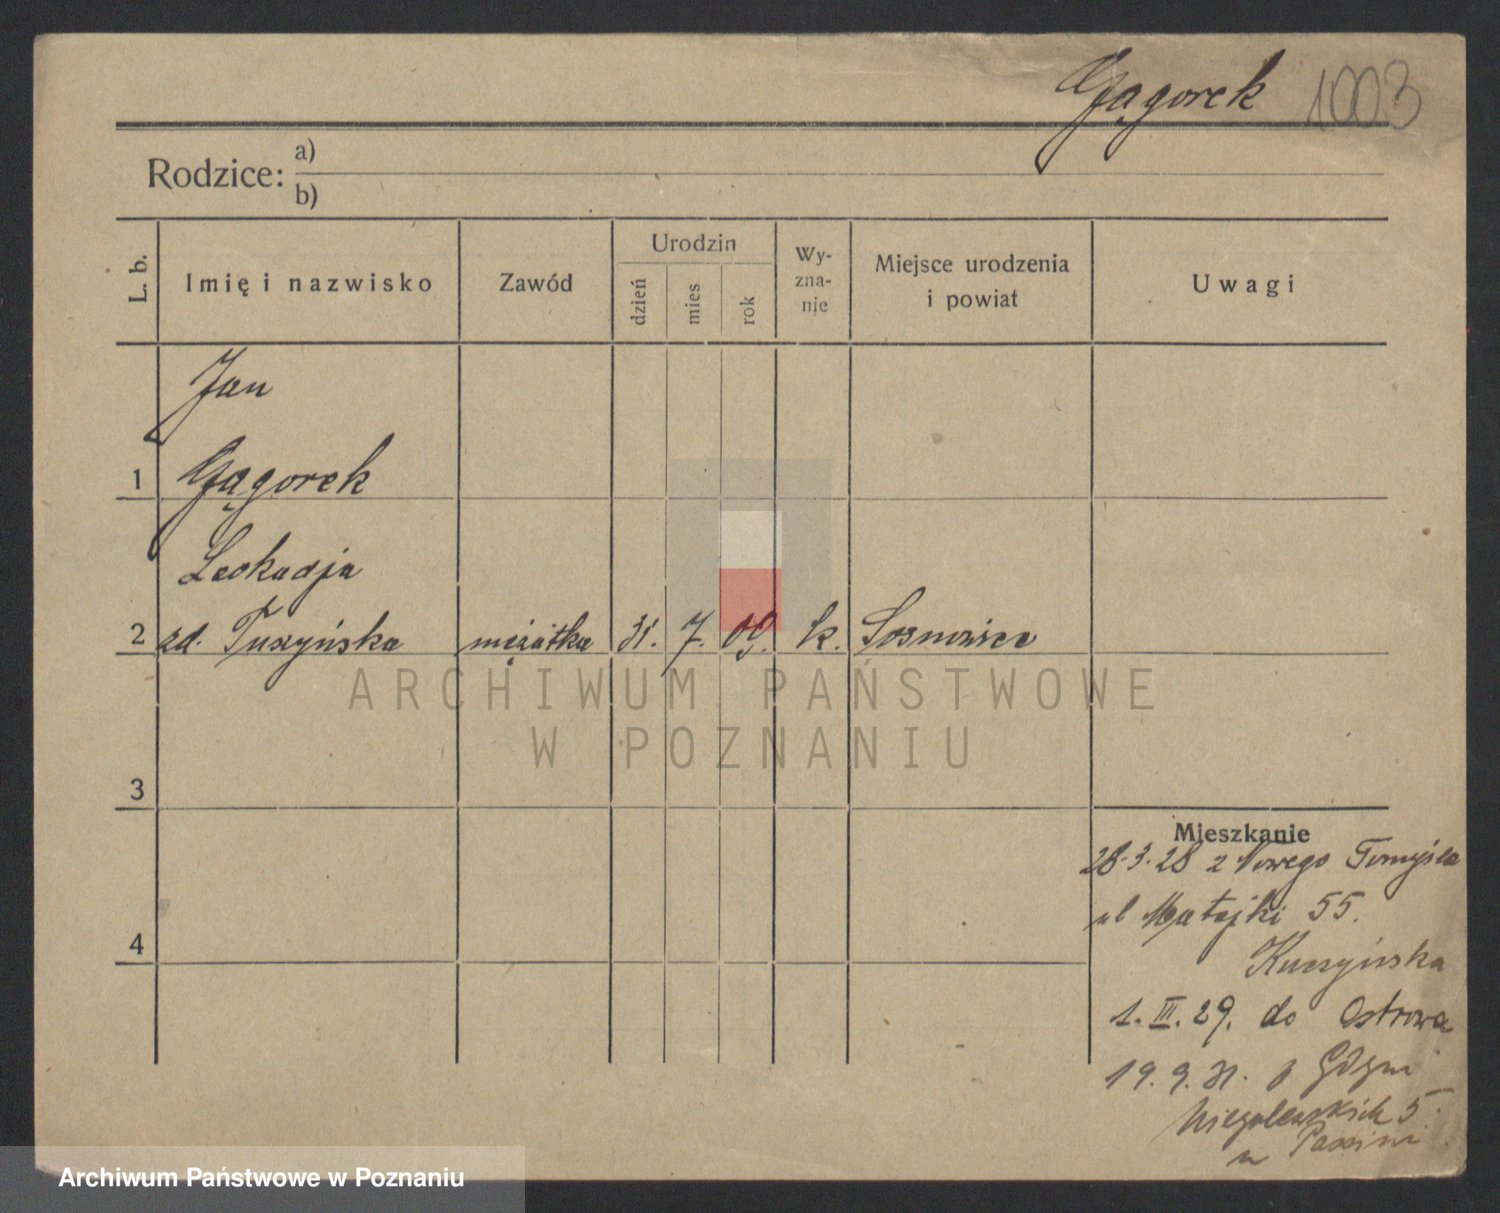 Gągorek 1003
Rodzice: a)
b)
L. b. Imię i nazwisko Zawód Urodzin dzień mies rok Wy-zna-nie Miejsce urodzenia i powiat Uwagi
Jan
1 Gągorek
Leokadja
2 zd. Tuszyńska mężatka 31. 7. 09. k. Sosnowice
ARCHIWUM PAŃSTWOWE
W POZNANIU
3
4
Mieszkanie
28.3.28 z Nowego Tomyśla
ul Matejki 55.
Kuczyńska
1. III. 29. do Ostrowa
19. 9. 31. z Gdyni
Niegolewskich 5
u
Archiwum Państwowe w Poznaniu